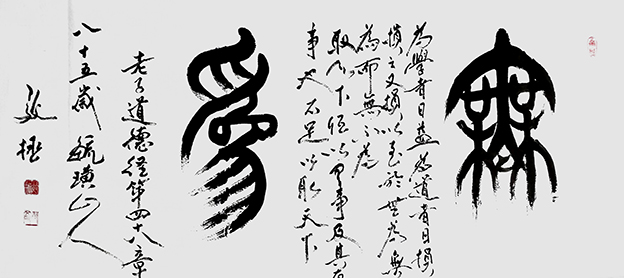 無
為學者日益為道者日損
損之又損以至於無為無
為而無不為
取天下恒以無事及其有
事又不足以取天下
為
老子道德经第四十八章
八十五歲毓璜山人